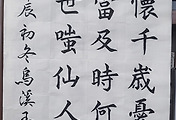 懷千歲憂
當及時何
世嗤仙人
辰初冬烏溪